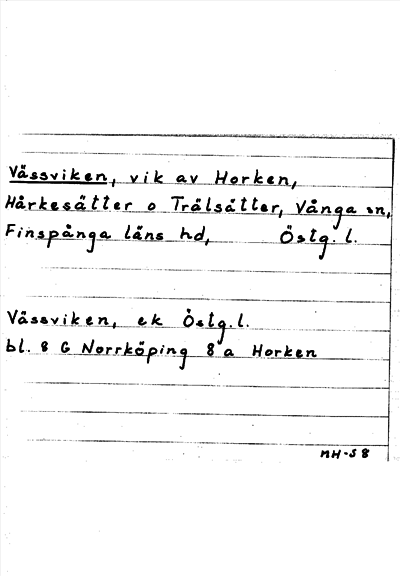 Vässviken, vik av Horken,
Hårkesätter o Trälsätter, Vånga sn,
Finspånga läns hd, Östg. l.
Vässviken, ek Östg. l.
bl. 8 G Norrköping 8 a Horken
MH-58